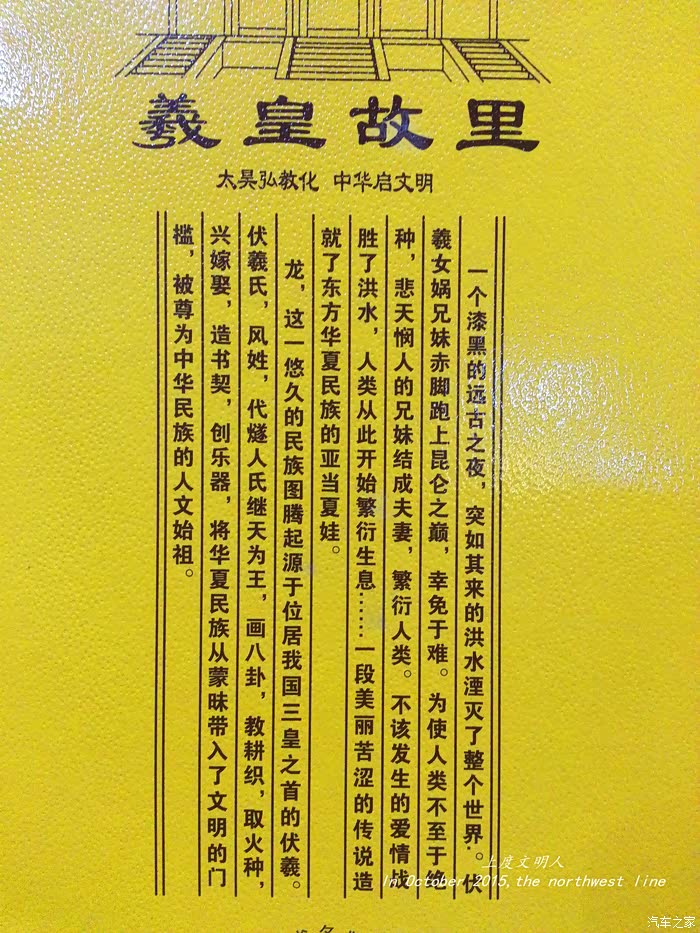 羲皇故里
太昊弘教化 中华启文明
一个漆黑的远古之夜，突如其来的洪水湮灭了整个世界。伏
羲女娲兄妹赤脚跑上昆仑之巅，幸免于难。为使人类不至于绝
种，悲天悯人的兄妹结成夫妻，繁衍人类。不该发生的爱情战
胜了洪水，人类从此开始繁衍生息……一段美丽苦涩的传说造
就了东方华夏民族的亚当夏娃。
龙，这一悠久的民族图腾起源于位居我国三皇之首的伏羲。
伏羲氏，风姓，代燧人氏继天为王，画八卦，教耕织，取火种，
兴嫁娶，造书契，创乐器，将华夏民族从蒙昧带入了文明的门
槛，被尊为中华民族的人文始祖。
上度文明人
In October 2015,the northwest line
汽车之家